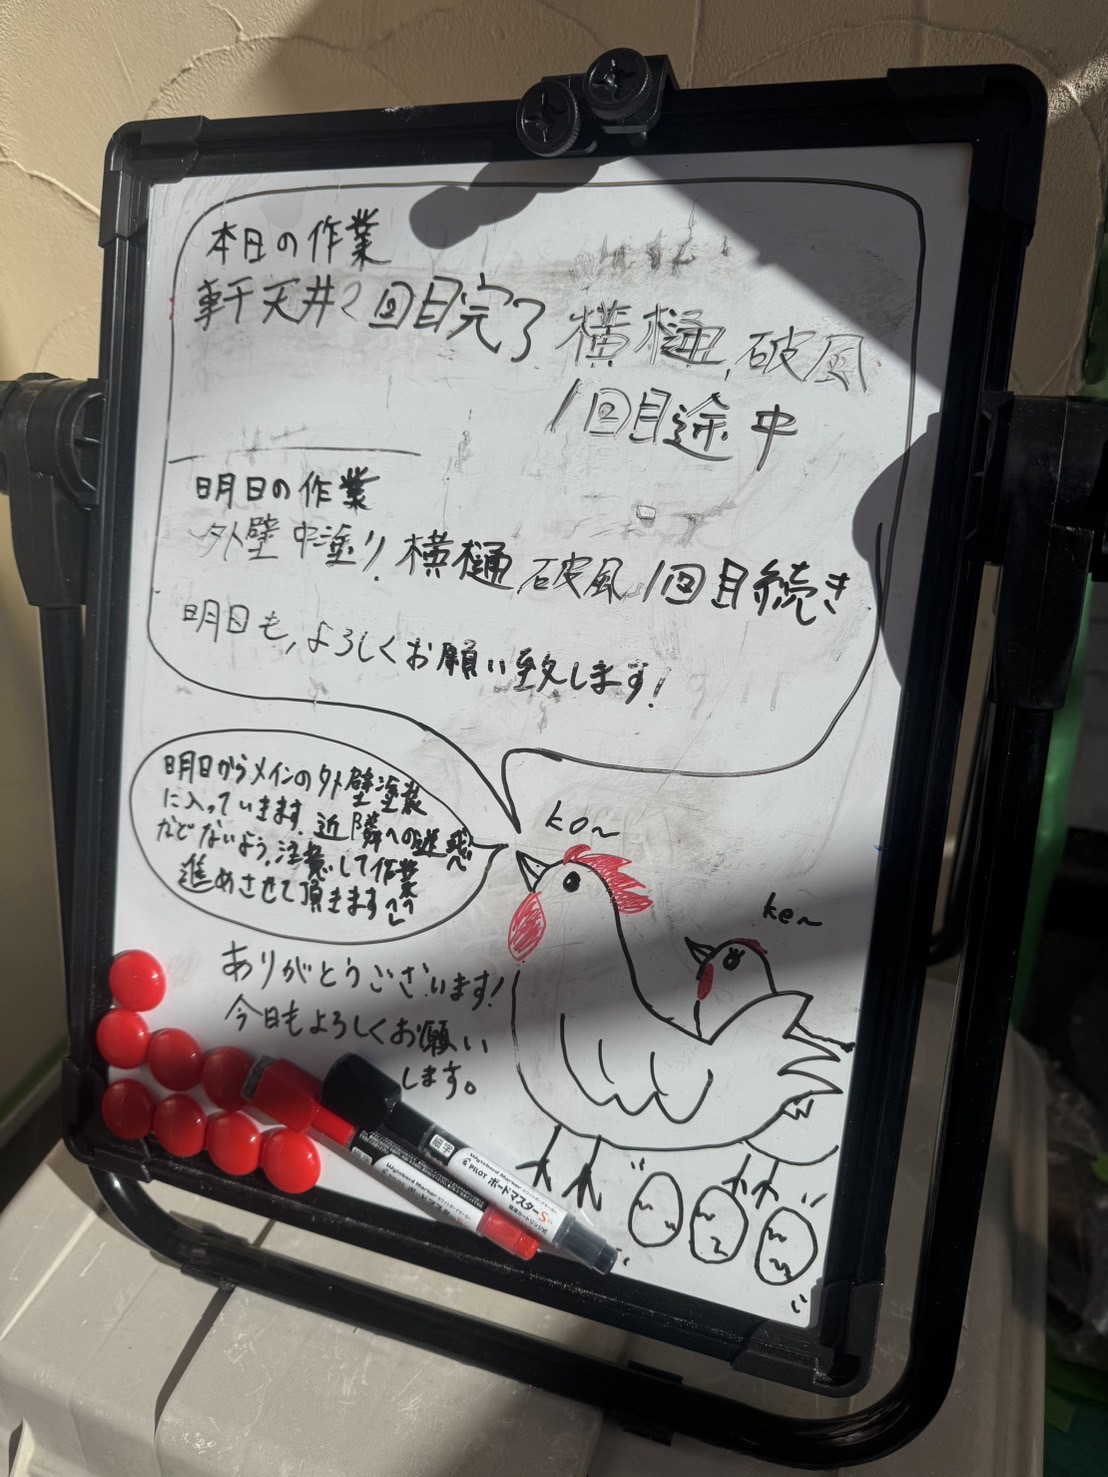 本日の作業
軒天井2回目完了 横樋、破風
1回目途中
明日の作業
外壁中塗り、横樋 破風 1回目続き
明日も、よろしくお願い致します!
明日からメインの外壁塗装
に入っていきます。近隣への飛
などないよう、注意して作業
進めさせて頂きます
ko~
ke~
ありがとうございます!
今日もよろしくお願い
します。
細字
PILOT ボードマスターS